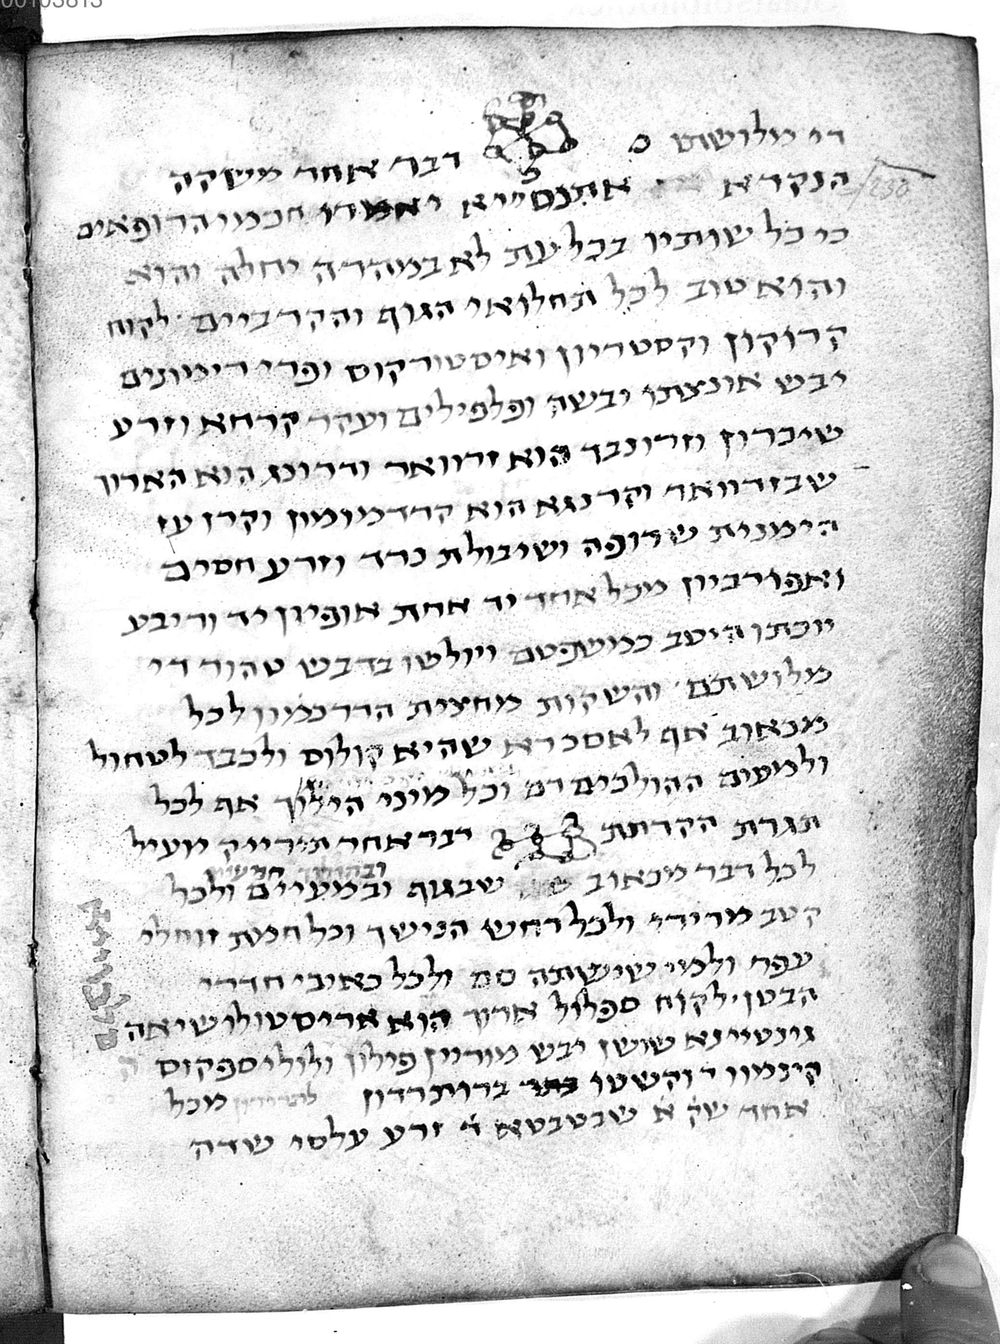 00103813
די מלושתם
דבר אחר משקה
הנקרא אתנסייא יאמרו חכמי הרופאים
כי כל שותיו בכל עת לא במהרה יחלה והוא
והוא טוב לכל תחלואי הגוף והקרביים לקוח
קרוקון וקסטריון ואיסטורקוס ופרי רימונים
יבש אונצתו יבשה ופלפילים ועקר קרחא וזרע
שיכרון וזרונבד הוא זרוואר ודרונג הוא הארוך
שבזרוואר וקרנגא הוא קרדמומון וקרן עז
הימנית שרופה ושיבולת נרד וזרע חסים
ואפורביון מכל אחד יד אחת אופיון יד ורובע
יוכתו היטב כמשפטם ויולטו בדבש טהור די
מלושתם והשקות מחצית הדרכמון לכל
מכאוב אף לאסכרא שהיא קולוס ולכבד לטחול
ולמעים ההולכים דם וכל מיני הילוך אף לכל
תגרת הקדחת דבר אחר תירייק יועיל
ובהולוך חמישי
לכל דבר מכאוב שבגוף ובמעיים ולכל
קטב מרירי ולכל רחש הנישך וכל חמת זוחלי
עפר ולמי שישתה סם ולכל כאיבי חדרי
הבטן לקוח ספלול ארוך הוא אריסטולושיאה
גינטיינא שושן יבש מוריין פילון ולוליספקוס
קינמון דוקשטו ברותרדון מכל
אחד שק א שבטבטא ו זרע עלסי שדה